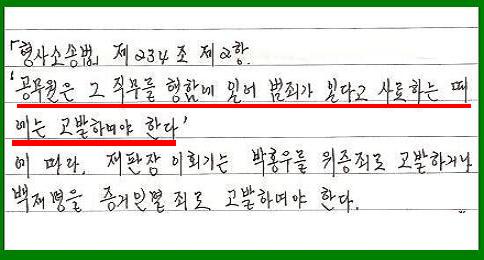 「형사소송법」 제234조 제2항.
'공무원은 그 직무를 행함에 있어 범죄가 있다고 사료하는 때
에는 고발하여야 한다'
에 따라, 재판장 이회기는 박홍우를 위증죄로 고발하거나
백재명을 증거인멸죄로 고발하여야 한다.